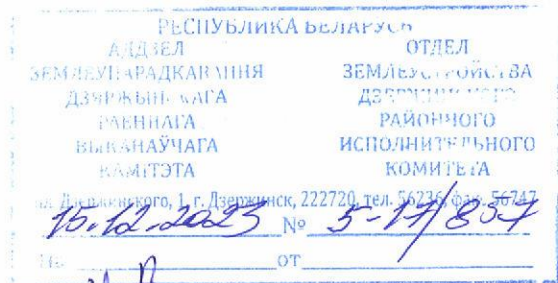 РЕСПУБЛИКА БЕЛАРУСЬ
АДДЗЕЛ
ЗЕМЛЕУПАРАДКАВАННЯ
ДЗЯРЖЫНСКАГА
РАЕННАГА
ВЫКАНАЎЧАГА
КАМІТЭТА
ОТДЕЛ
ЗЕМЛЕУСТРОЙСТВА
ДЗЕРЖИНСКОГО
РАЙОННОГО
ИСПОЛНИТЕЛЬНОГО
КОМИТЕТА
Дзержинского, 1, г. Дзержинск, 222720, тел. 56236, факс 56747
15.12.2023 № 5-17/837
На от